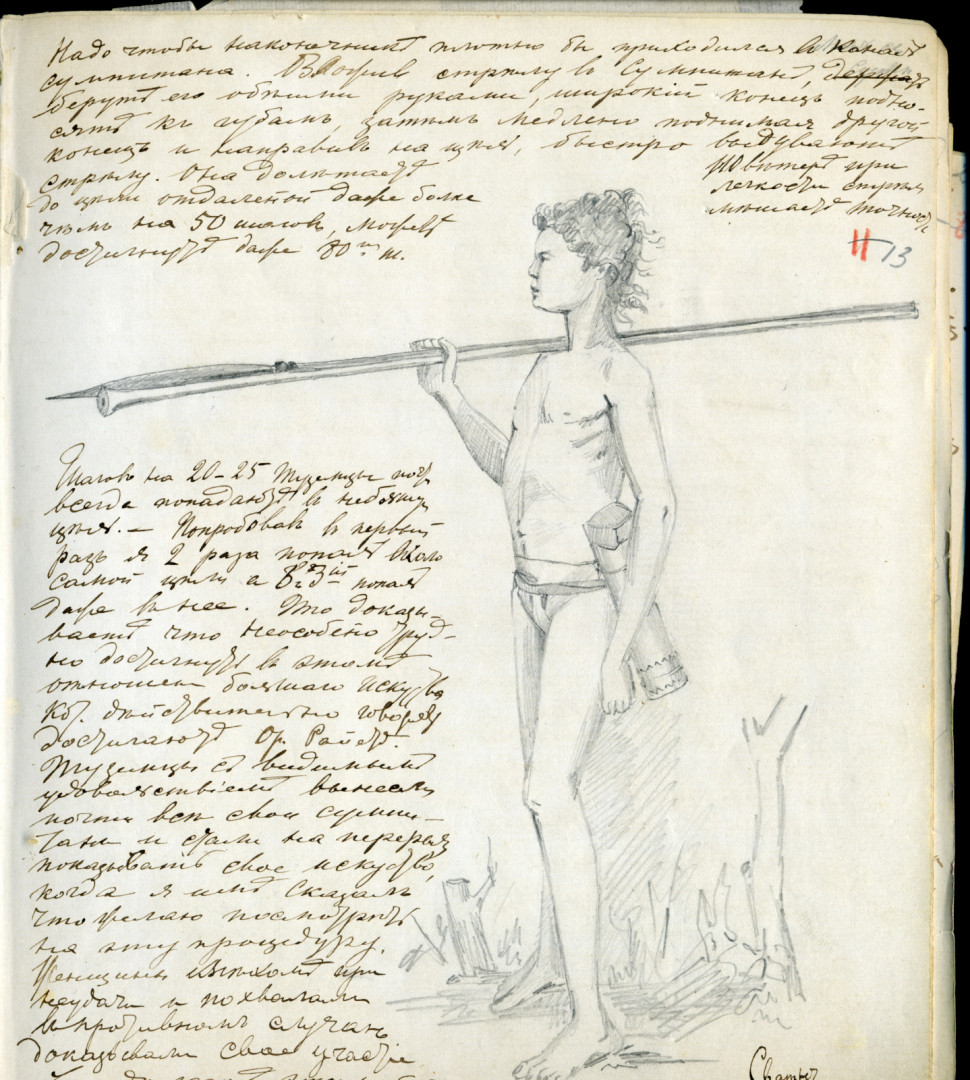 Надо чтобы наконечникъ плотно бы приходился въ каналъ
сумпитана. Вложив стрѣлу въ Сумпитанъ, держа
берутъ его обѣими руками, широкій конецъ подно-
сятъ къ губамъ, затѣмъ медлено поднимая другой
конецъ и направивъ на цѣль, быстро выдуваютъ
стрѣлу. Она долѣтаетъ
до цѣли отдаленой даже болѣе
чѣмъ на 50 шаговъ, можетъ
достигнуть даже 80 ш.
при
легкости стрѣлы
мѣшаетъ
II 13
Шаговъ на 20-25 Туземцы
всегда попадаютъ въ
цѣль. – Попробовавъ в первый
разъ я 2 раза попалъ около
самой цѣли а въ 3ій попалъ
даже въ нее. Это доказы-
ваетъ что неособено труд-
но достигнуть въ этомъ
отношен большаго искуства
кот. дѣйствительно говорятъ
достигаютъ Ор. Райетъ.
Туземцы съ видимымъ
удовольствіемъ вынесли
почти всѣ свои сумпи-
таны и стали на перерывъ
показывать свое искуство,
когда я имъ сказалъ
что желаю посмотрѣть
на эту процедуру.
Женщины смѣхомъ при
неудачи и похвалами
въ противномъ случаѣ
доказывали свое участіе